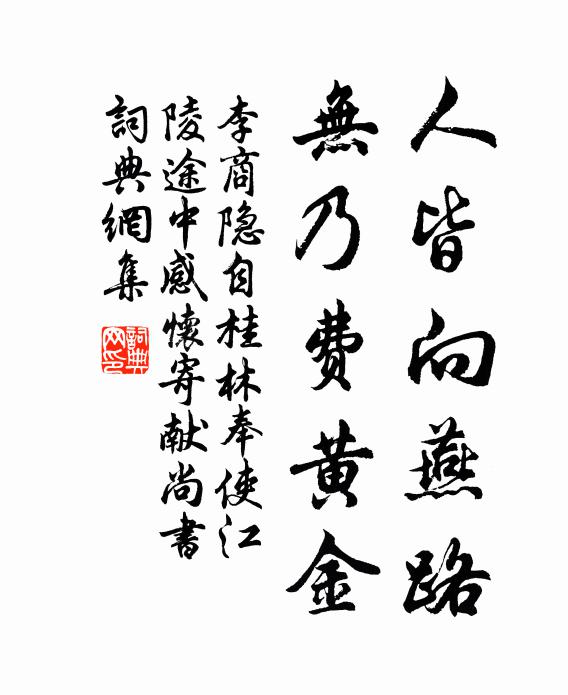 人皆向燕路
無乃費黄金
李商隐自桂林奉使江
陵途中感懷寄献尚書
詞典網集
詞典
网印